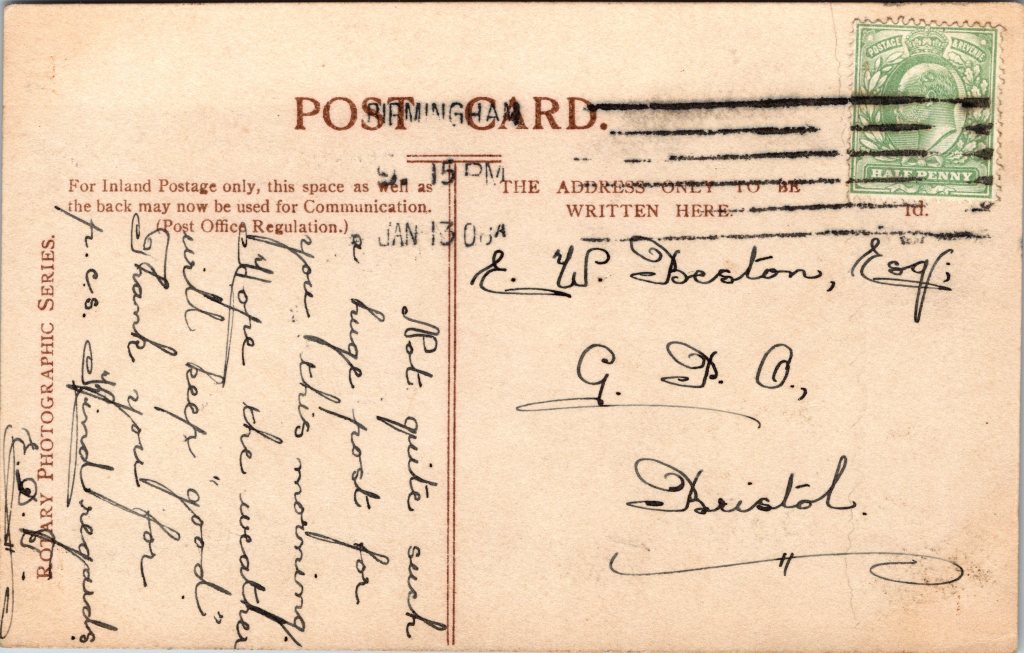 POST CARD.
BIRMINGHAM
9. 15 PM
JAN 13 06
POSTAGE & REVENUE
HALF PENNY
For Inland Postage only, this space as well as
the back may now be used for Communication.
(Post Office Regulation.)
THE ADDRESS ONLY TO BE
WRITTEN HERE.
1d.
ROTARY PHOTOGRAPHIC SERIES.
Not quite such
a huge post for
you this morning.
Hope the weather
will keep "good"
Thank you for
p.c.s. Kind regards.
E. W. Beston, Esq;
G. P. O.,
Bristol.